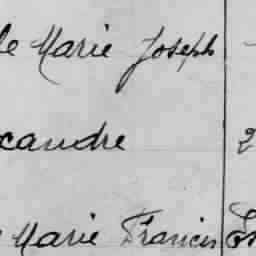 le Marie Joseph
xandre 2
Marie Francis